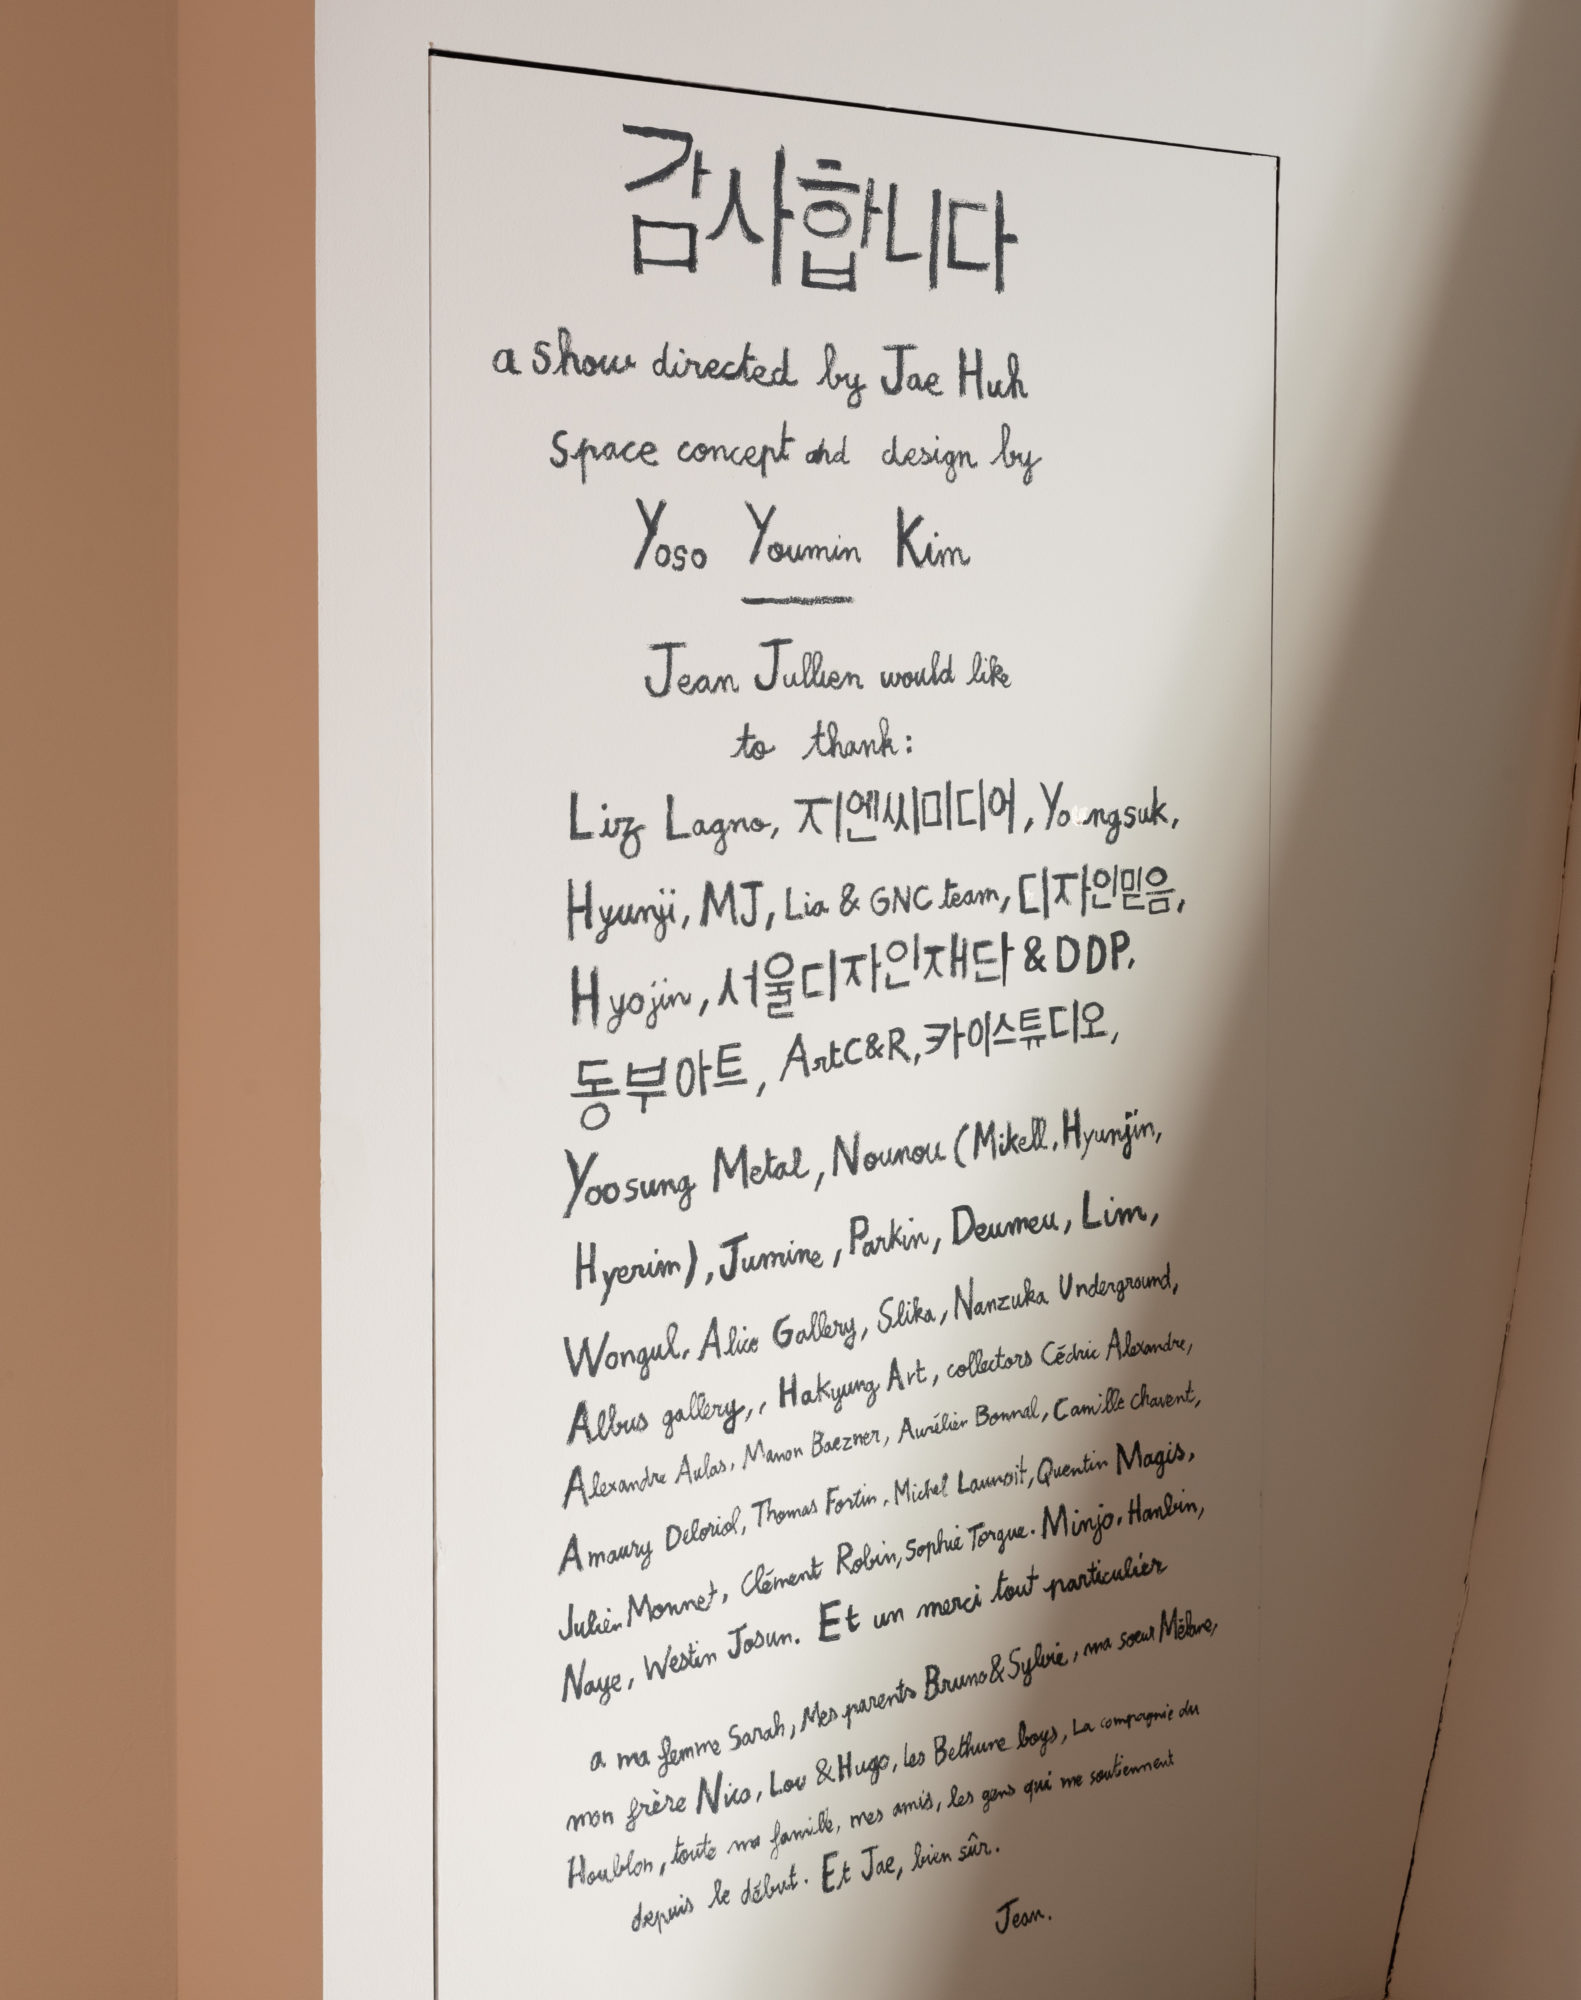 감사합니다
a show directed by Jae Huh
Space concept and design by
Yoso Youmin Kim
Jean Jullien would like
to thank:
Liz Lagno, 지엔씨미디어, Youngsuk,
Hyunji, MJ, Lia & GNC team, 디자인믿음,
Hyojin, 서울디자인재단 & DDP,
동부아트, ArtC&R, 카이스튜디오,
Yoosung Metal, Nounou (Mikell, Hyunjin,
Hyerim), Jumine, Parkin, Deumeu, Lim,
Wongul, Alice Gallery, Slika, Nanzuka Underground,
Albus gallery,, Hakyung Art, collectors Cédric Alexandre,
Alexandre Aulas, Manon Baezner, Aurélien Bonnal, Camille Chavent,
Amaury Deloriol, Thomas Fortin, Michel Launoit, Quentin Magis,
Julien Monnet, Clément Robin, Sophie Torgue. Minjo, Hanbin,
Naye, Westin Josun. Et un merci tout particulier
a ma femme Sarah, Mes parents Bruno & Sylvie, ma sœur
mon frère Nico, Lou & Hugo, les Bethune boys, La compagnie du
Houblon, toute ma famille, mes amis, les gens qui me soutiennent
depuis le début. Et Jae, bien sûr.
Jean.